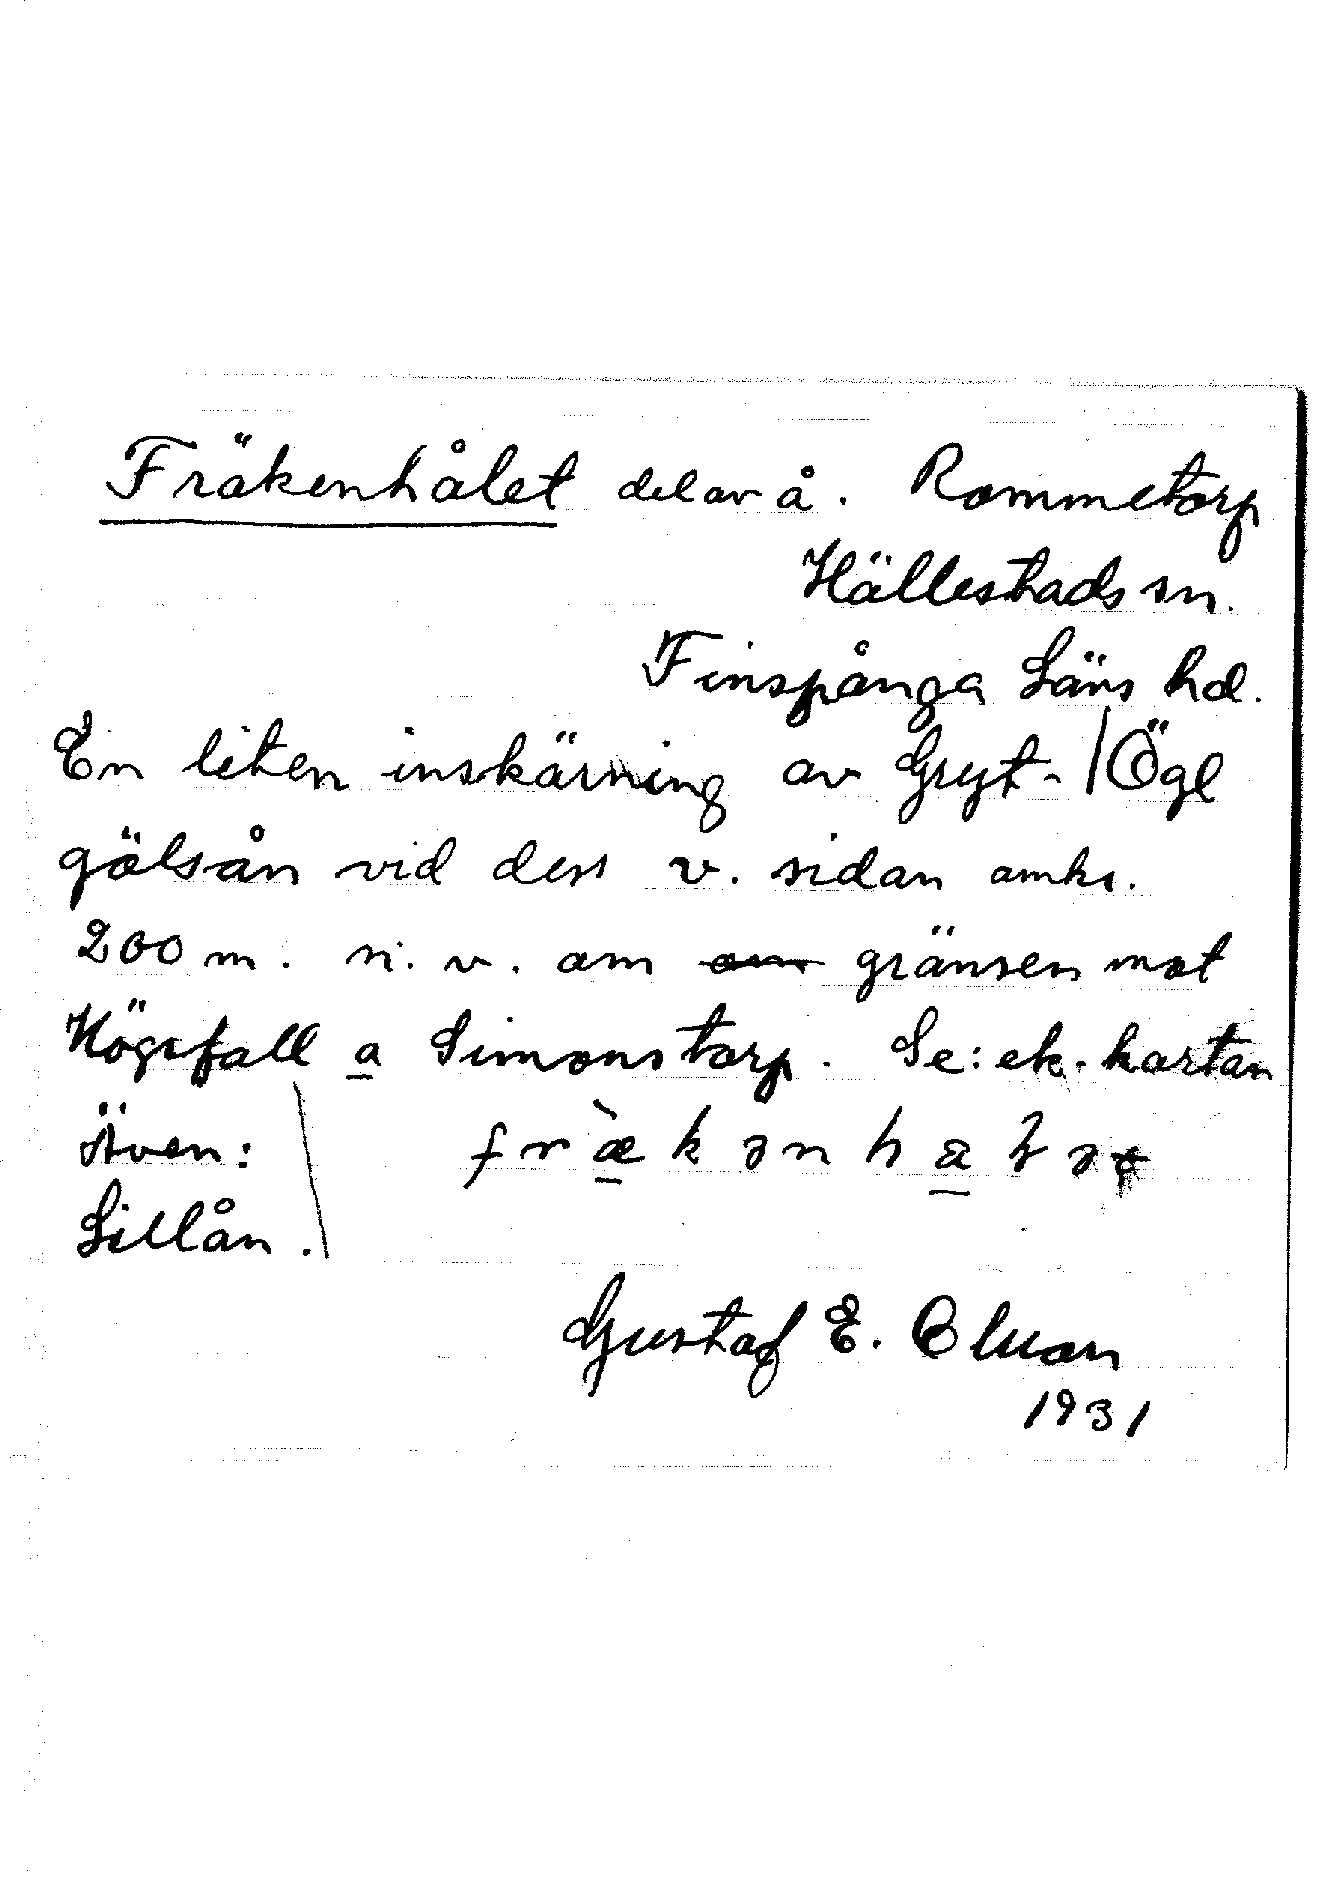 Fräkenhålet del av å. Rommetorp
Hällestads sn.
Finspånga Läns hd.
En liten inskärning av Gryt- / Ögl
gölsån vid dess v. sidan omkr.
200 m. n. v. om om gränsen mot
Högsfall a Simonstorp. Se: ek. kartan
Även:
Lillån.
Gustaf E.
1931